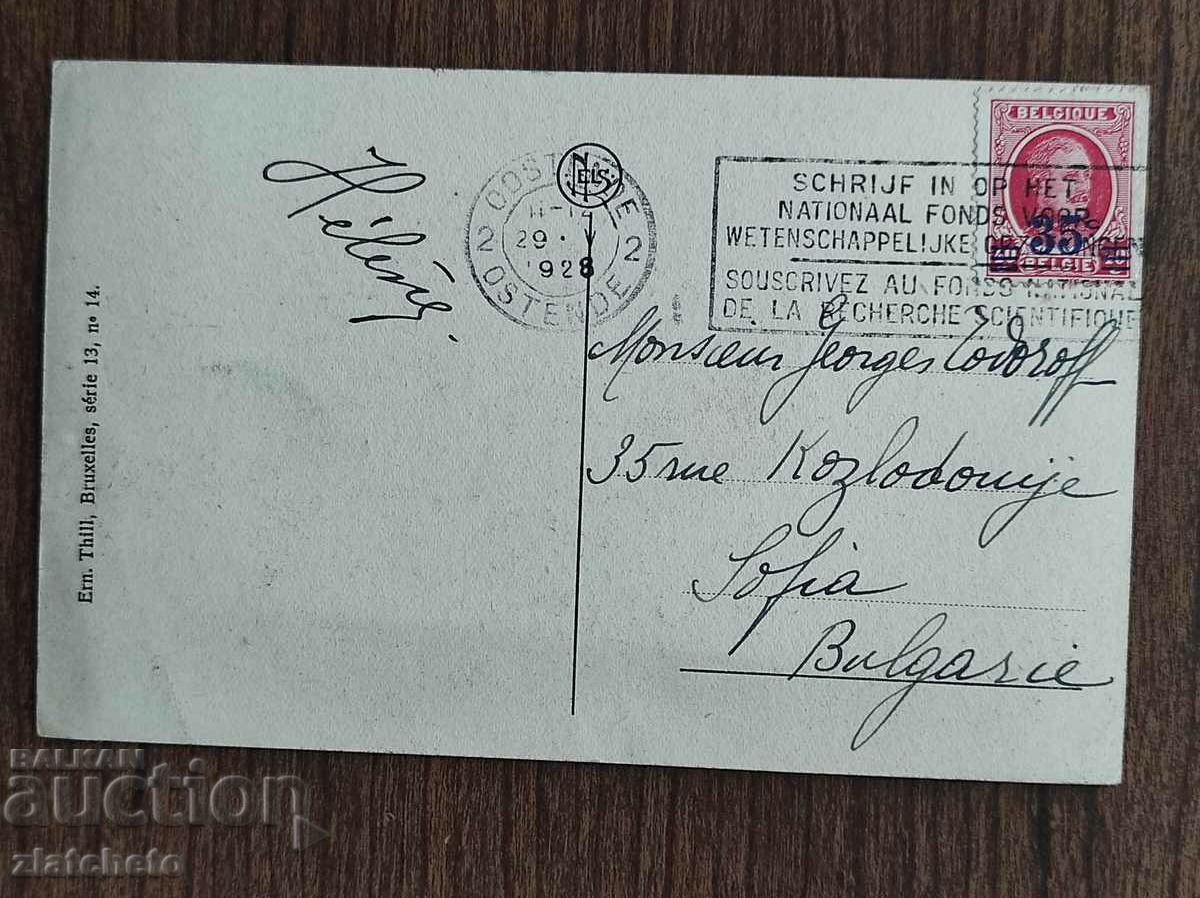 Hélène.
NELS
OOSTENDE
2 29 · V 2
1928
OSTENDE
BELGIQUE
35c
BELGIË
SCHRIJF IN OP HET
NATIONAAL FONDS VOOR
WETENSCHAPPELIJKE
SOUSCRIVEZ AU FONDS NATIONAL
DE LA RECHERCHE SCIENTIFIQUE
Monsieur Georges Todoroff
35 rue Kozlodouije
Sofia
Bulgarie
Ern. Thill, Bruxelles, série 13, no 14.
BALKAN
auction
zlatcheto